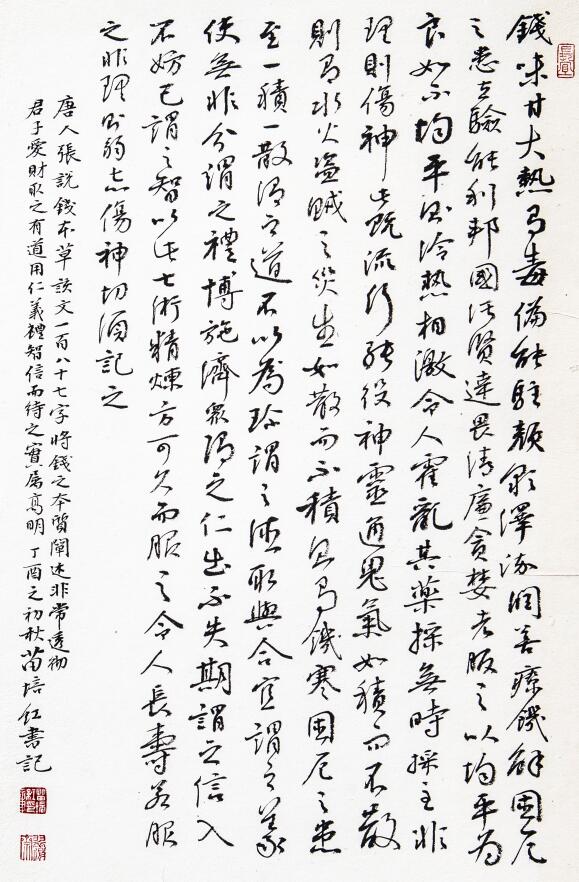 錢味甘大熱有毒偏能駐顏彩澤流潤善療饑解困厄
之患立驗能利邦國汙賢達畏清廉貪婪者服之以均平為
良如不均平則冷熱相激令人霍亂其藥採無時採之非
理則傷神此既流行能役神靈通鬼氣如積而不散
則有水火盜賊之災生如散而不積則有饑寒困厄之患
至一積一散謂之道不以為珍謂之德取與合宜謂之義
使無非分謂之禮博施濟眾謂之仁出不失期謂之信入
不妨己謂之智以此七術精煉方可久而服之令人長壽若服
之非理則弱志傷神切須記之
唐人張說錢本草該文一百八十七字將錢之本質闡述非常透徹
君子愛財取之有道用仁義禮智信而待之實屬高明丁酉之初秋苗培紅書記